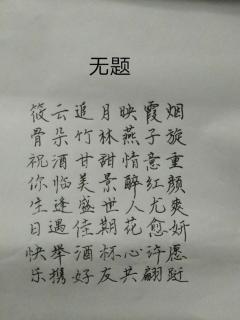 无题
筱云追月映霞烟
骨朵竹林燕子旋
祝酒甘甜情意重
你临美景醉红颜
生逢盛世人尤爽
日遇佳期花愈妍
快举酒杯心许愿
乐携好友共翩跹